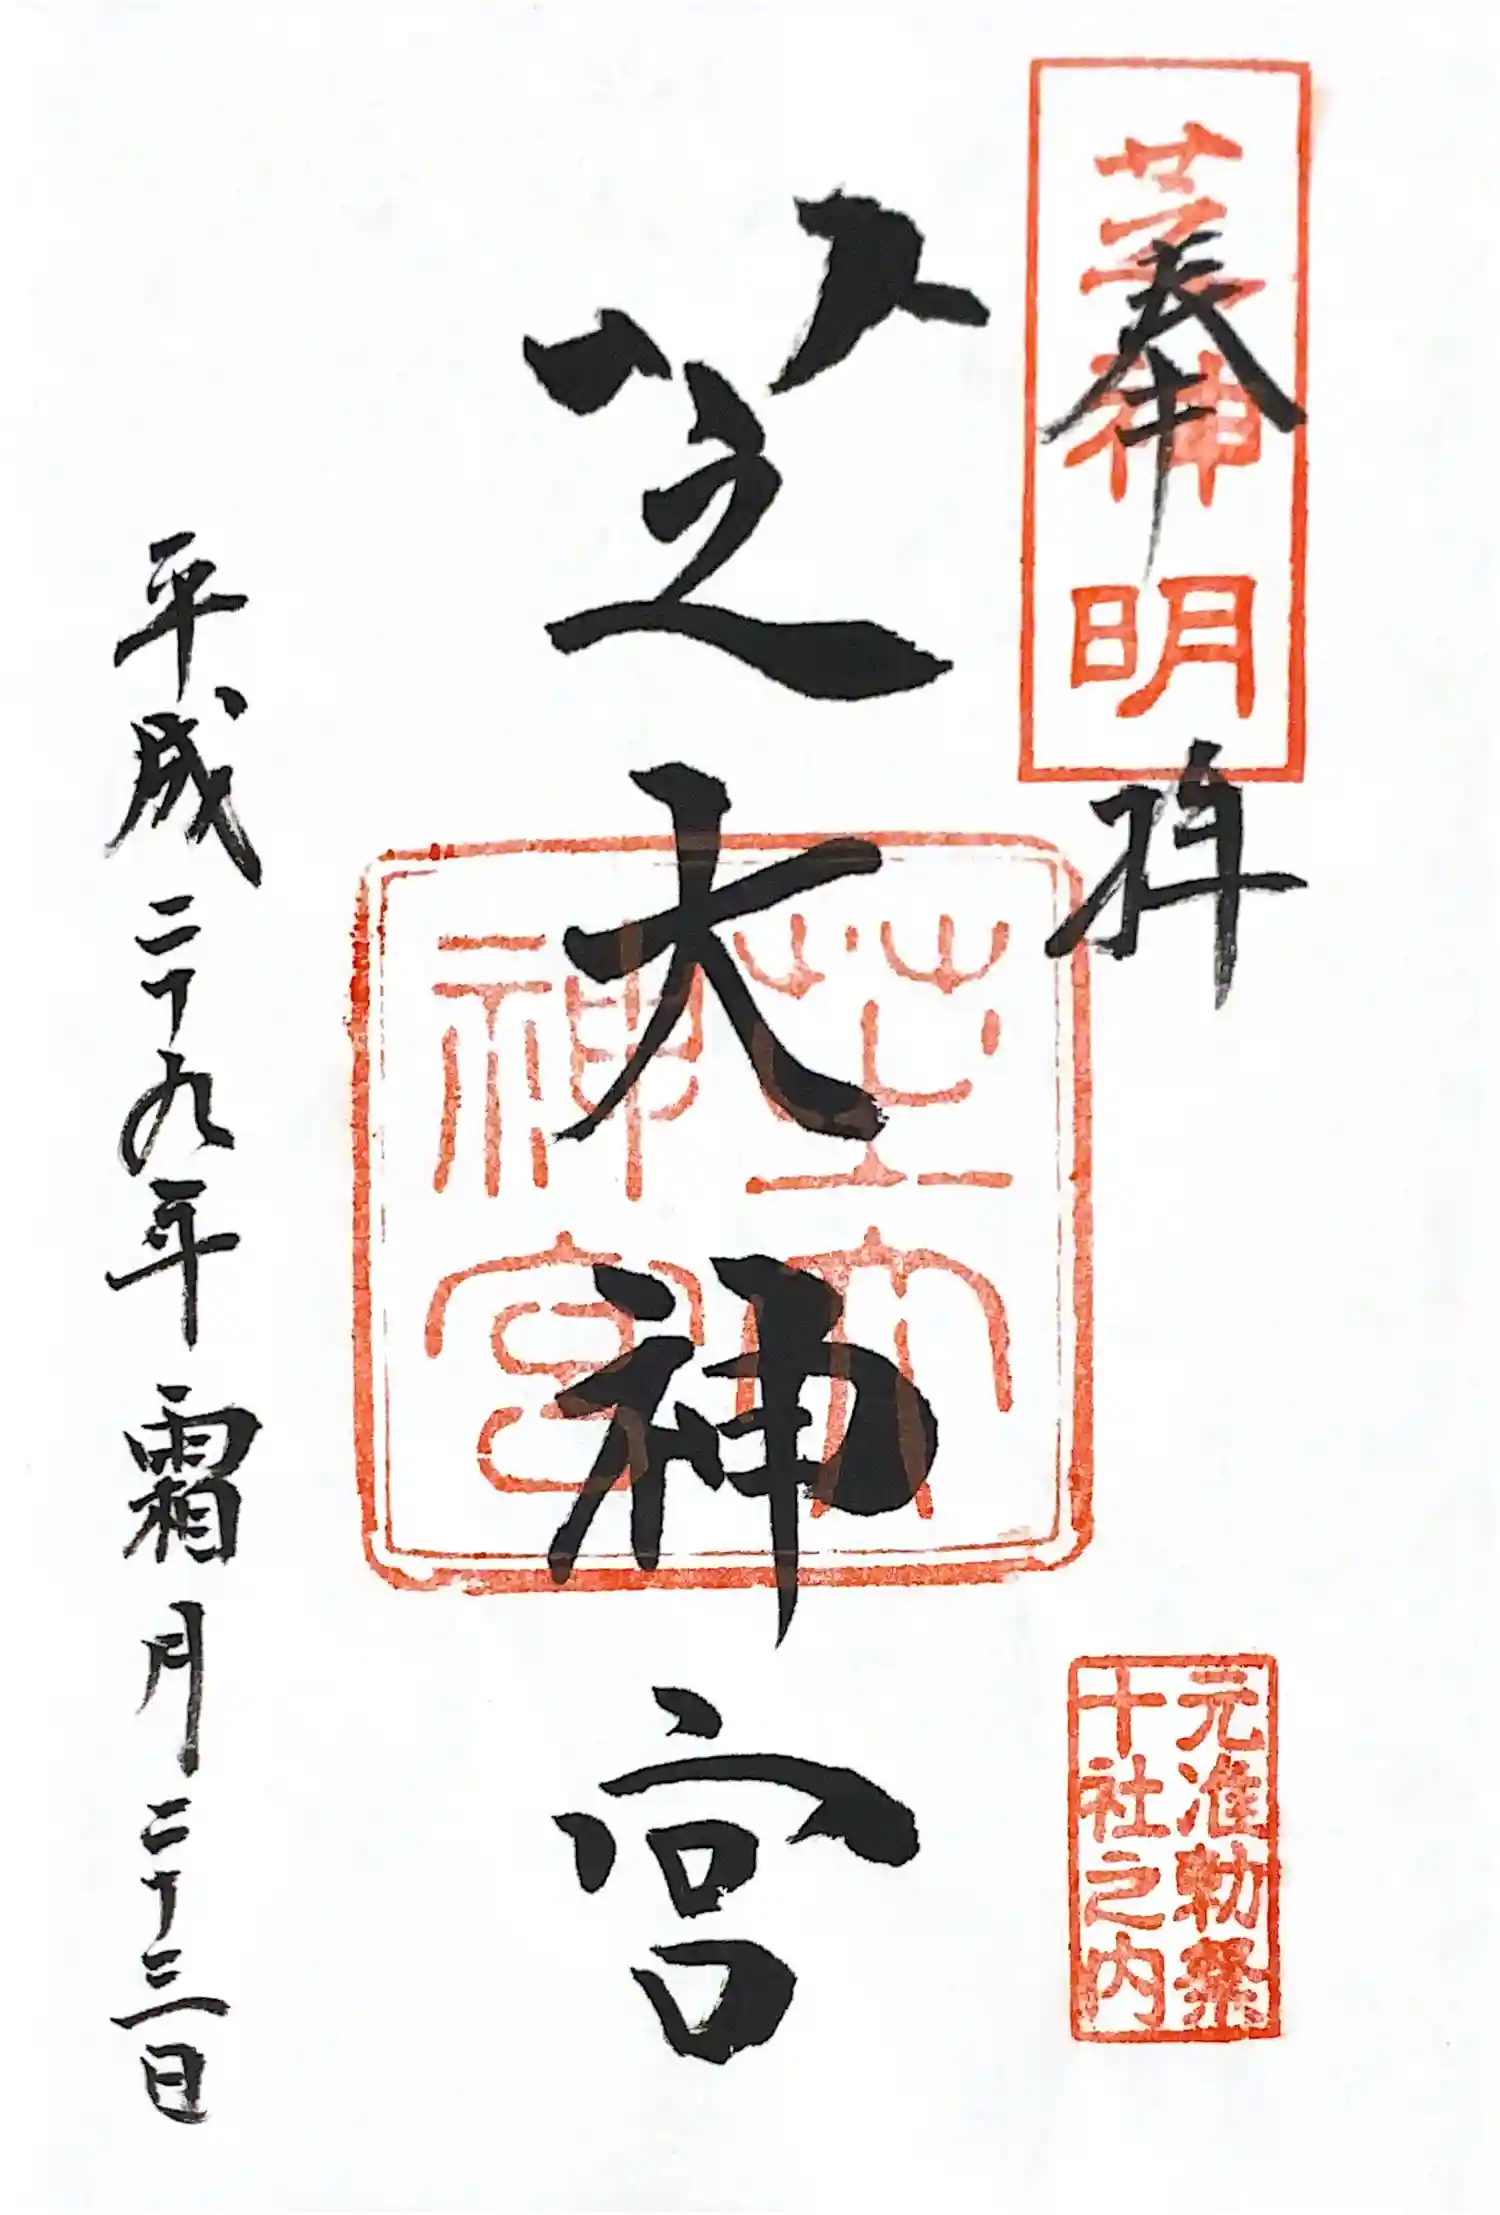 奉拝
芝神明
芝大神宮
芝大
神宮
元准勅祭
十社之内
平成二十九年霜月二十三日